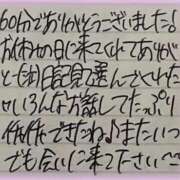 60分でありがとうございました!
お休みの日に来てくれてありが
と 日記見て選んでくれた
いろんなお話してたっぷり
できたね♪またいつ
でも会いに来てださい〜